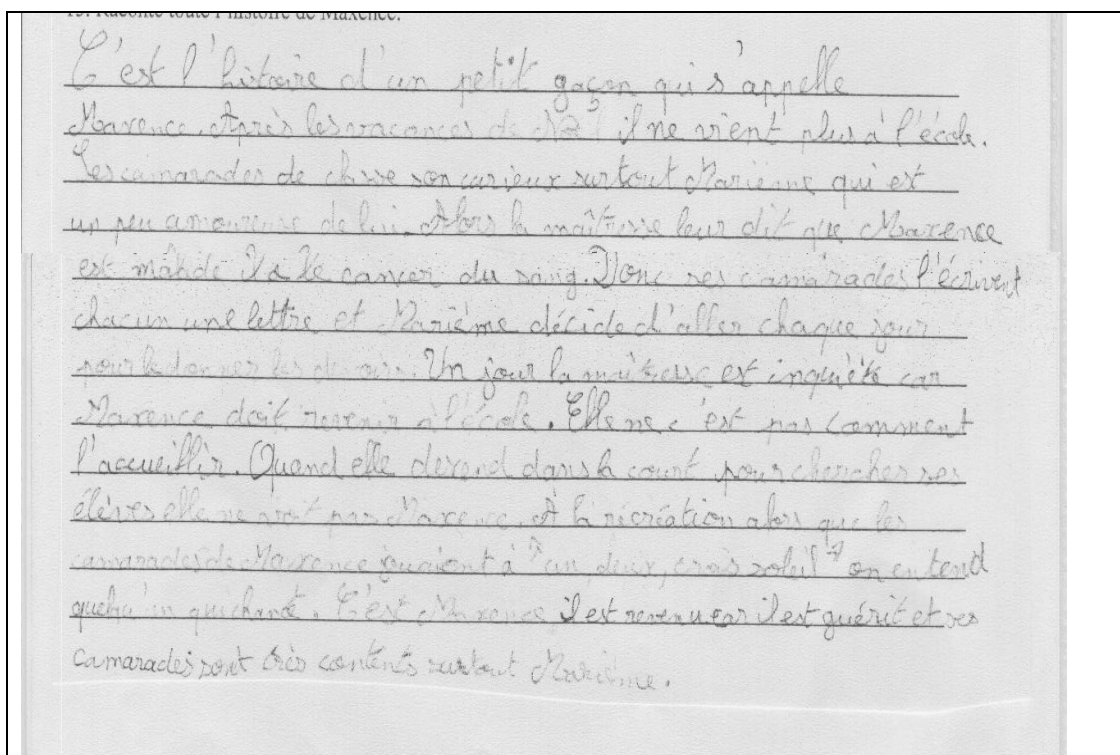 15. Raconte toute l'histoire de Maxence.
C'est l'histoire d'un petit gaçon qui s'appelle
Maxence. Après les vacances de il ne vient plus à l'école.
Ses camarades de classe son curieux surtout Marième qui est
un peu amoureuse de lui. Alors la maîtresse leur dit que Maxence
est malade il a le cancer du sang. Donc ses camarades l'écrivent
chacun une lettre et Marième décide d'aller chaque jour
pour le donner les devoirs. Un jour la maîtresse est inquiète car
Maxence doit revenir à l'école. Elle ne c'est pas comment
l'accueillir. Quand elle descend dans la court pour cherches ses
élèves elle ne voit pas Maxence. A la récréation alors que les
camarades de Maxence jouaient à "un, deux, trois soleil" on entend
quelqu'un qui chante. C'est Maxence il est revenu car il est guérit et ses
camarades sont très contents surtout Marième.